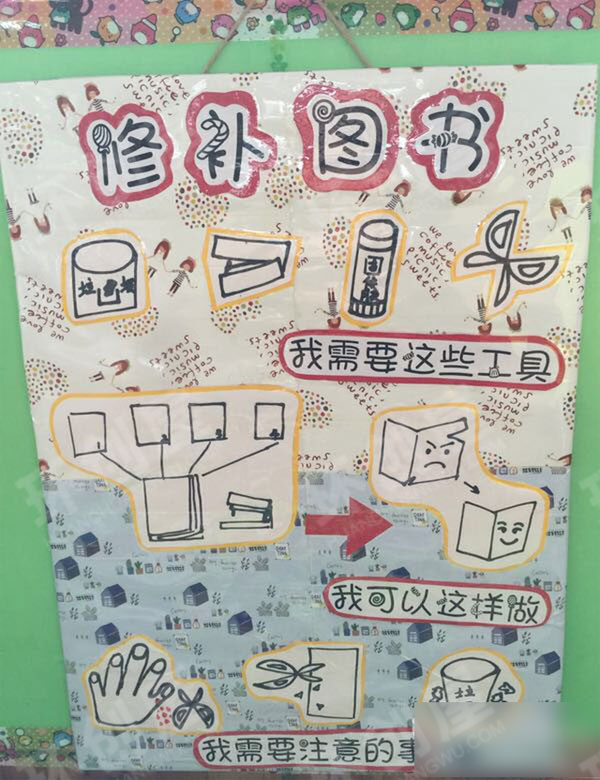 修补图书
垃圾桶
固体胶
我需要这些工具
我可以这样做
垃
我需要注意的事